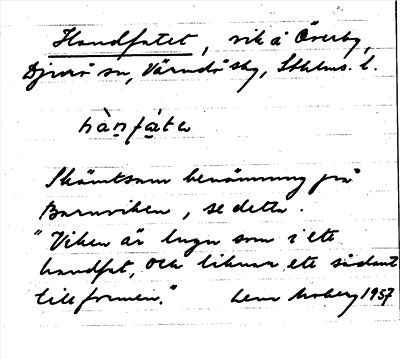 Handfatet, vik å Överby,
Djurö sn, Värmdö skg, Sthlms. l.
hàṇfa̱tɘ
Skämtsam benämning på
Barnviken, se detta.
"Viken är lugn som i ett
handfat, och liknar ett sådant
till formen."
Lena Moberg 1957